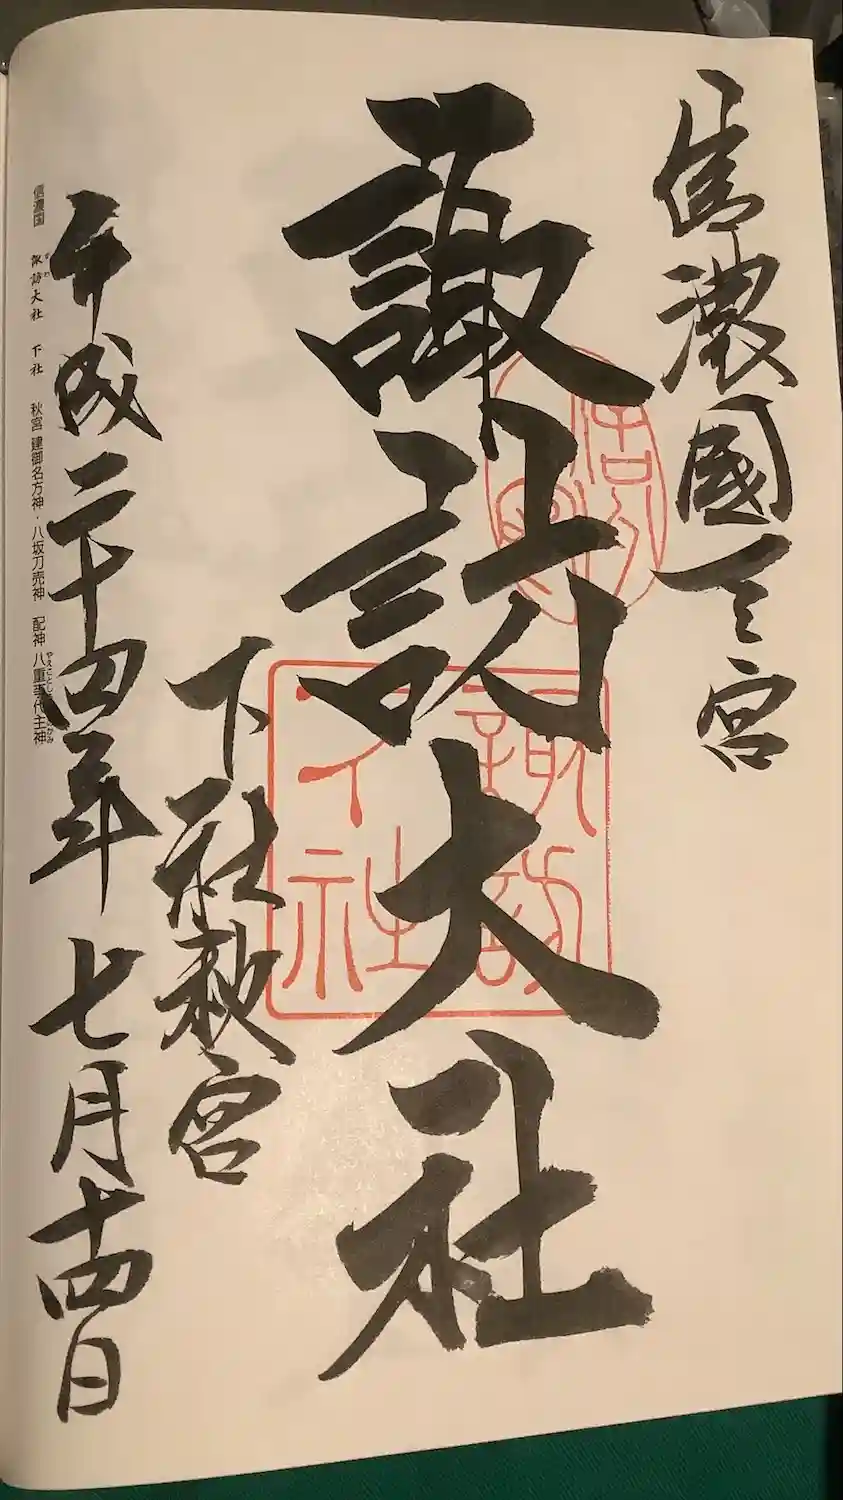 信濃國一之宮
諏訪大社
諏訪
下社
下社秋宮
平成二十四年七月十四日
信濃国 諏訪大社 下社 秋宮 建御名方神・八坂刀売神 配神 八重事代主神
すわ